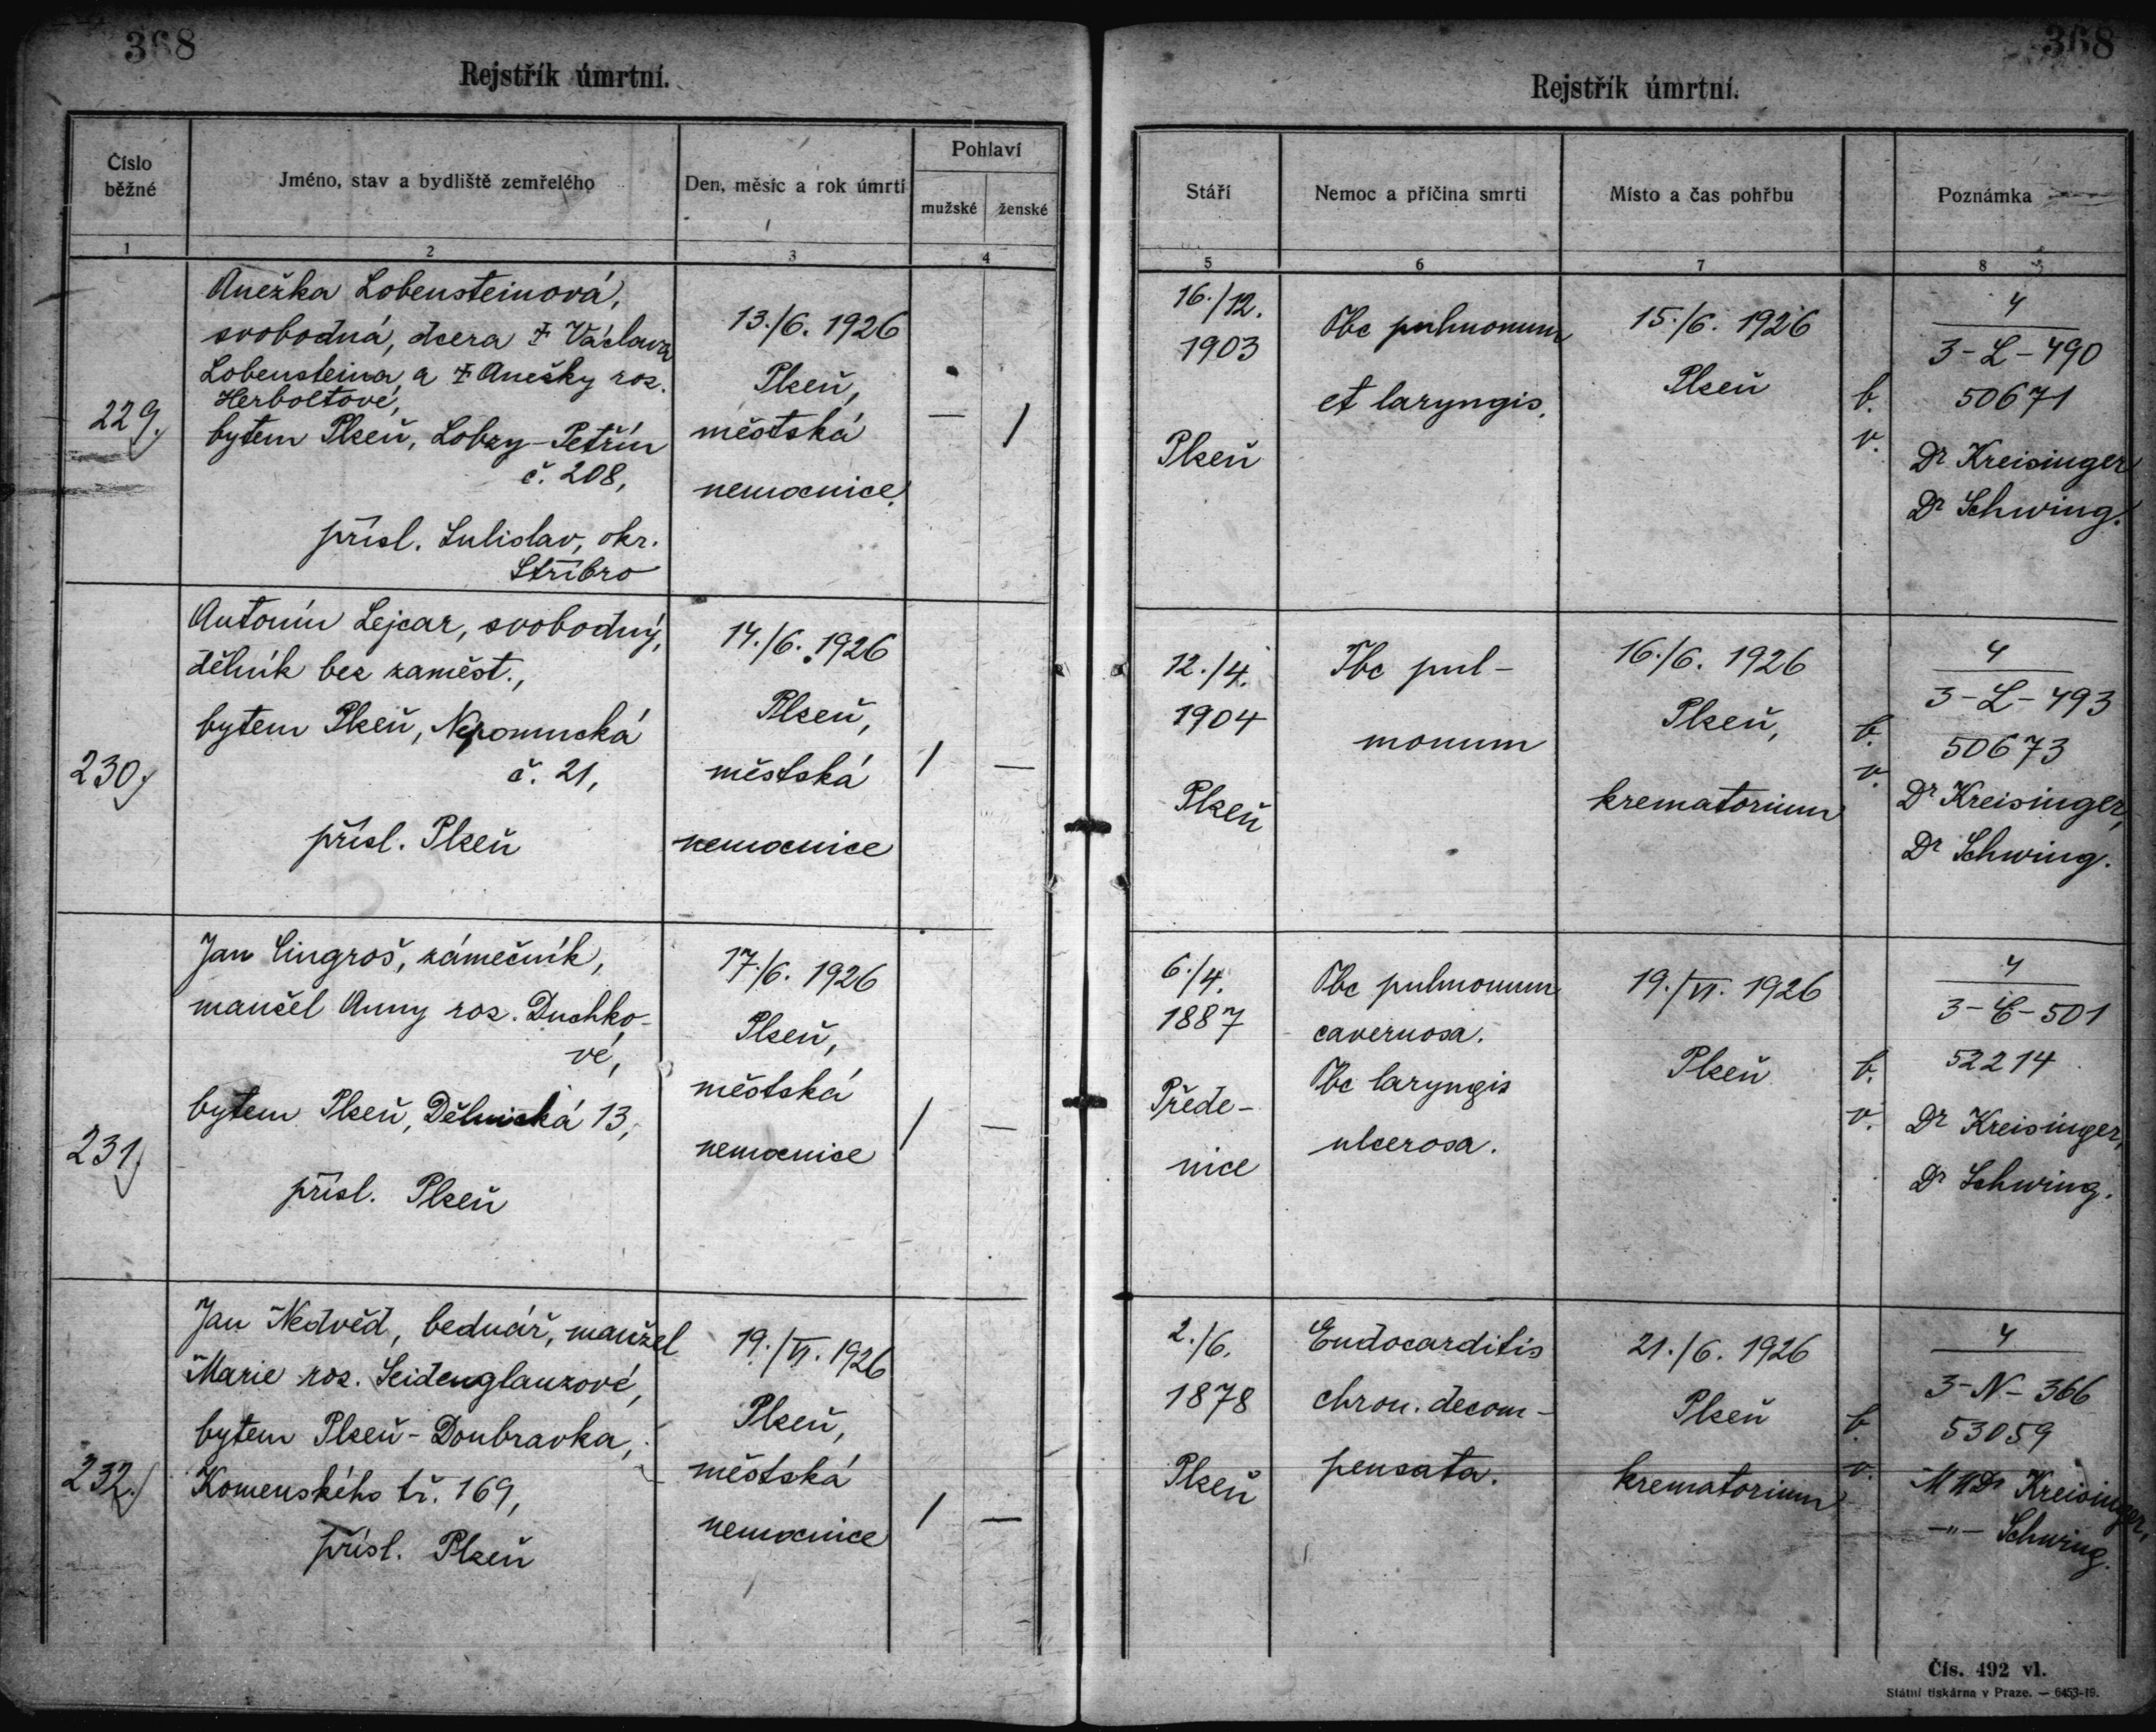 368
Rejstřík úmrtní.
Číslo
běžné
Jméno, stav a bydliště zemřelého
Den, měsíc a rok úmrtí
Pohlaví
mužské
ženské
1
2
3
4
229.
Anežka Lobensteinová,
svobodná, dcera † Václava
Lobensteina, a † Anežky roz.
Herboltové,
bytem Plzeň, Lobzy-Petřín
č. 208,
přísl. Sulislav, okr.
Stříbro
13./6. 1926
Plzeň,
městská
nemocnice.
—
/
230.
Antonín Lejcar, svobodný,
dělník bez zaměst.,
bytem Plzeň, Nepomucká
č. 21,
přísl. Plzeň
14./6. 1926
Plzeň,
městská
nemocnice
/
—
231.
Jan Cingroš, zámečník,
manžel Anny roz. Duchko-
vé,
bytem Plzeň, Dělnická 13,
přísl. Plzeň
17./6. 1926
Plzeň,
městská
nemocnice
/
—
232.
Jan Nedvěd, bednář, manžel
Marie roz. Seidenglanzové,
bytem Plzeň-Doubravka,
Komenského tř. 169,
přísl. Plzeň
19./VI. 1926
Plzeň,
městská
nemocnice
/
—
368
Rejstřík úmrtní.
Stáří
Nemoc a příčina smrti
Místo a čas pohřbu
Poznámka
5
6
7
8
16./12.
1903
Plzeň
Tbc pulmonum
et laryngis.
15./6. 1926
Plzeň
b.
v.
4
3-L-490
50671
Dr Kreisinger
Dr Schwing.
12./4.
1904
Plzeň
Tbc pul-
monum
16./6. 1926
Plzeň,
krematorium
b.
v.
4
3-L-493
50673
Dr Kreisinger,
Dr Schwing.
6./4.
1887
Přede-
nice
Tbc pulmonum
cavernosa.
Tbc laryngis
ulcerosa.
19./VI. 1926
Plzeň
b.
v.
4
3-C-501
52214
Dr Kreisinger,
Dr Schwing.
2./6.
1878
Plzeň
Endocarditis
chron. decom-
pensata.
21./6. 1926
Plzeň
krematorium
b.
v.
4
3-N-366
53059
MUDr Kreisinger,
-"- Schwing.
Čís. 492 vl.
Státní tiskárna v Praze. — 6453-19.